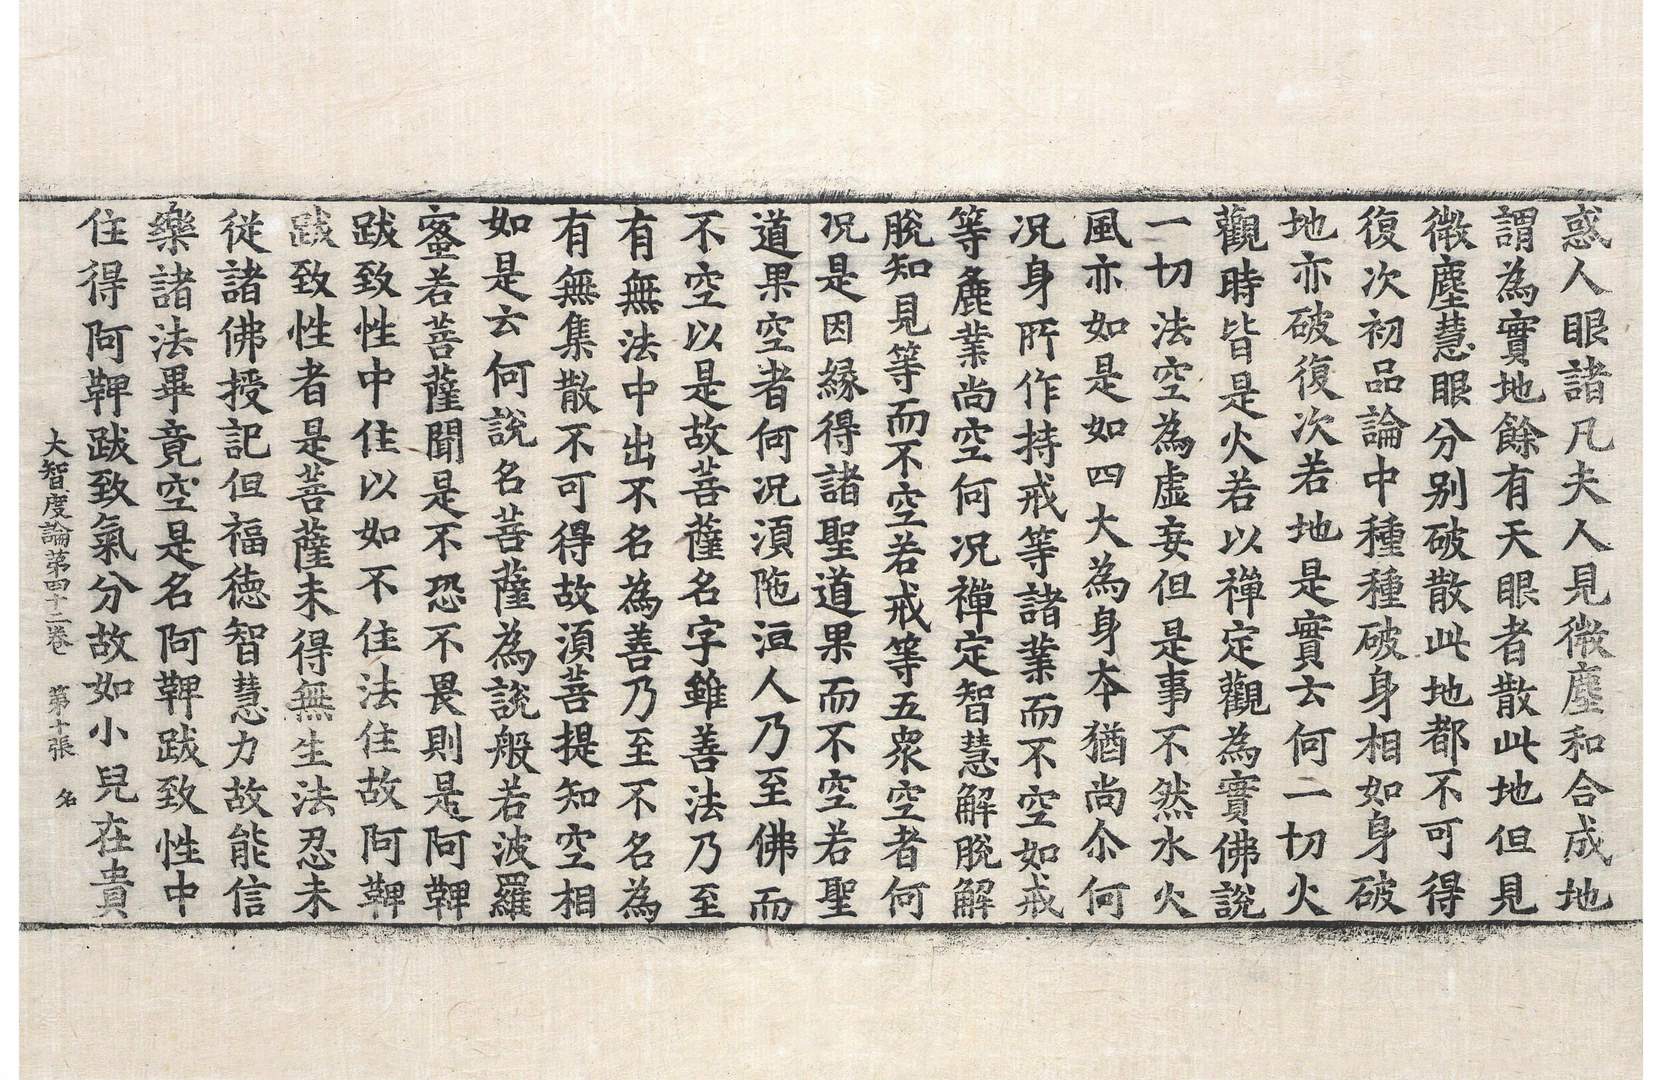 惑人眼諸凡夫人見微塵和合成地
謂為實地餘有天眼者散此地但見
微塵慧眼分別破散此地都不可得
復次初品論中種種破身相如身破
地亦破復次若地是實云何一切火
觀時皆是火若以禪定觀為實佛說
一切法空為虛妄但是事不然水火
風亦如是如四大為身本猶尚尒何
況身所作持戒等諸業而不空如戒
等麁業尚空何況禪定智慧解脫解
脫知見等而不空若戒等五衆空者何
況是因緣得諸聖道果而不空若聖
道果空者何況湏陁洹人乃至佛而
不空以是故菩薩名字雖善法乃至
有無法中出不名為善乃至不名為
有無集散不可得故湏菩提知空相
如是云何說名菩薩為說般若波羅
蜜若菩薩聞是不恐不畏則是阿鞞
跋致性中住以如不住法住故阿鞞
跋致性者是菩薩未得無生法忍未
從諸佛授記但福德智慧力故能信
樂諸法畢竟空是名阿鞞跋致性中
住得阿鞞跋致氣分故如小兒在貴
大智度論第四十二卷 第十張 名